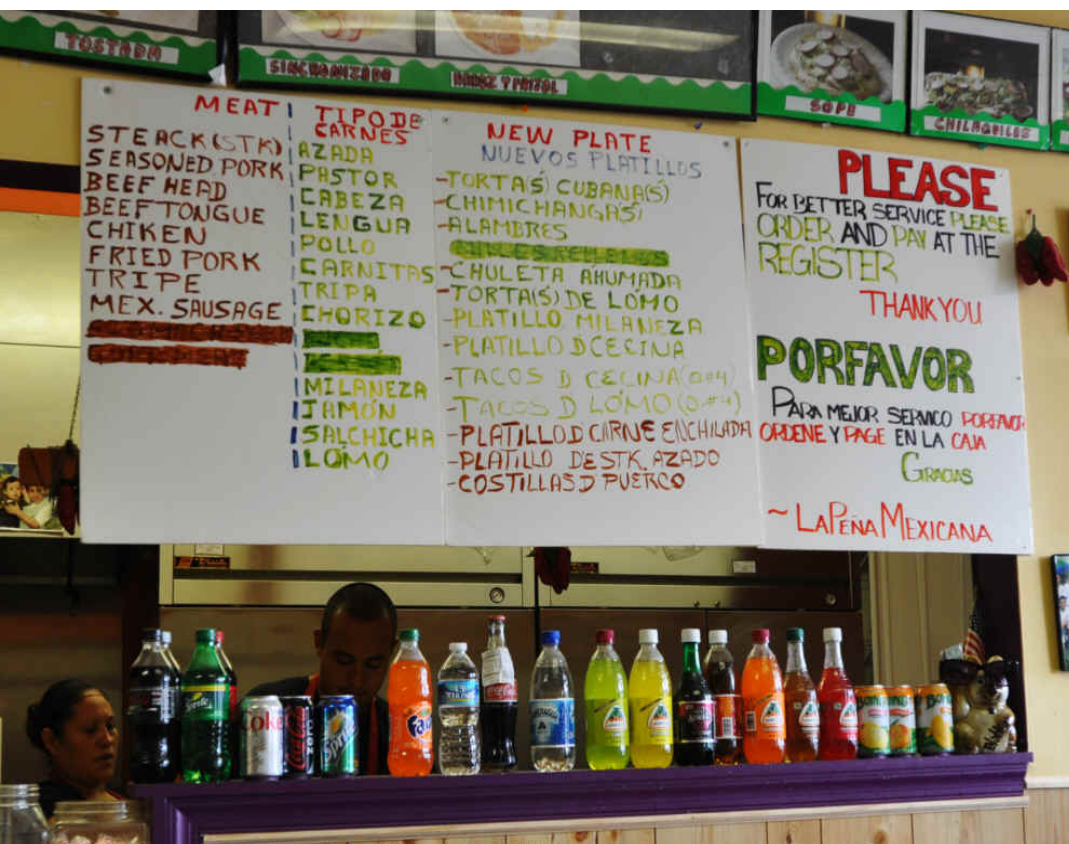 TOSTADA
SINCRONIZADO
ARROZ Y FRIJOL
SOPE
CHILAQUILES
MEAT
STEACK(STK)
SEASONED PORK
BEEF HEAD
BEEF TONGUE
CHIKEN
FRIED PORK
TRIPE
MEX. SAUSAGE
TIPO DE
CARNES
AZADA
PASTOR
CABEZA
LENGUA
POLLO
CARNITAS
TRIPA
CHORIZO
MILANEZA
JAMÓN
SALCHICHA
LOMO
NEW PLATE
NUEVOS PLATILLOS
-TORTA(S) CUBANA(S)
-CHIMICHANGA(S)
-ALAMBRES
-CHULETA AHUMADA
-TORTA(S) DE LOMO
-PLATILLO MILANEZA
-PLATILLO D CECINA
-TACOS D CECINA(O#4)
-TACOS D LOMO(O#4)
-PLATILLO.D CARNE ENCHILADA
-PLATILLO DE STK. AZADO
-COSTILLAS D PUERCO
PLEASE
FOR BETTER SERVICE PLEASE
ORDER AND PAY AT THE
REGISTER
THANK YOU
PORFAVOR
PARA MEJOR SERVICO PORFAVOR
ORDENE Y PAGE EN LA CAJA
GRACIAS
~ LA PEÑA MEXICANA
Sprite
Coke
Coca-Cola
zero
Sprite
Fanta
Coca-Cola